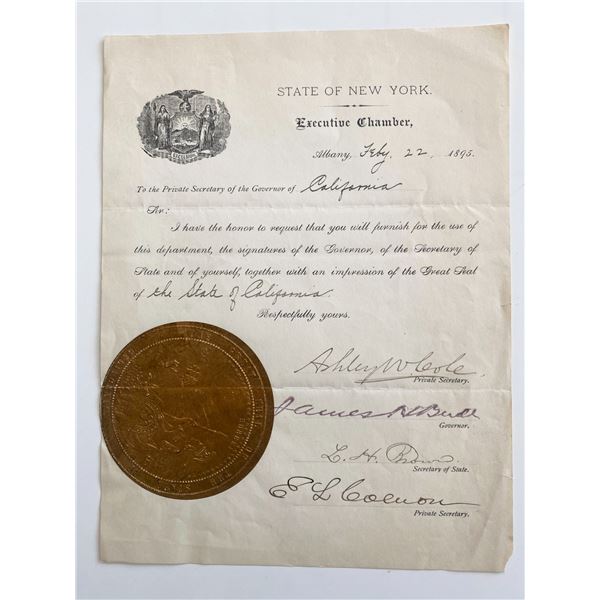 EXCELSIOR
STATE OF NEW YORK.
Executive Chamber,
Albany, Feby. 22, 1895.
To the Private Secretary of the Governor of California
Sir:
I have the honor to request that you will furnish for the use of
this department, the signatures of the Governor, of the Secretary of
State and of yourself, together with an impression of the Great Seal
of the State of California.
Respectfully yours,
Ashley W. Cole
Private Secretary.
James H Budd
Governor.
L. H. Brown
Secretary of State.
E L Colnon
Private Secretary.